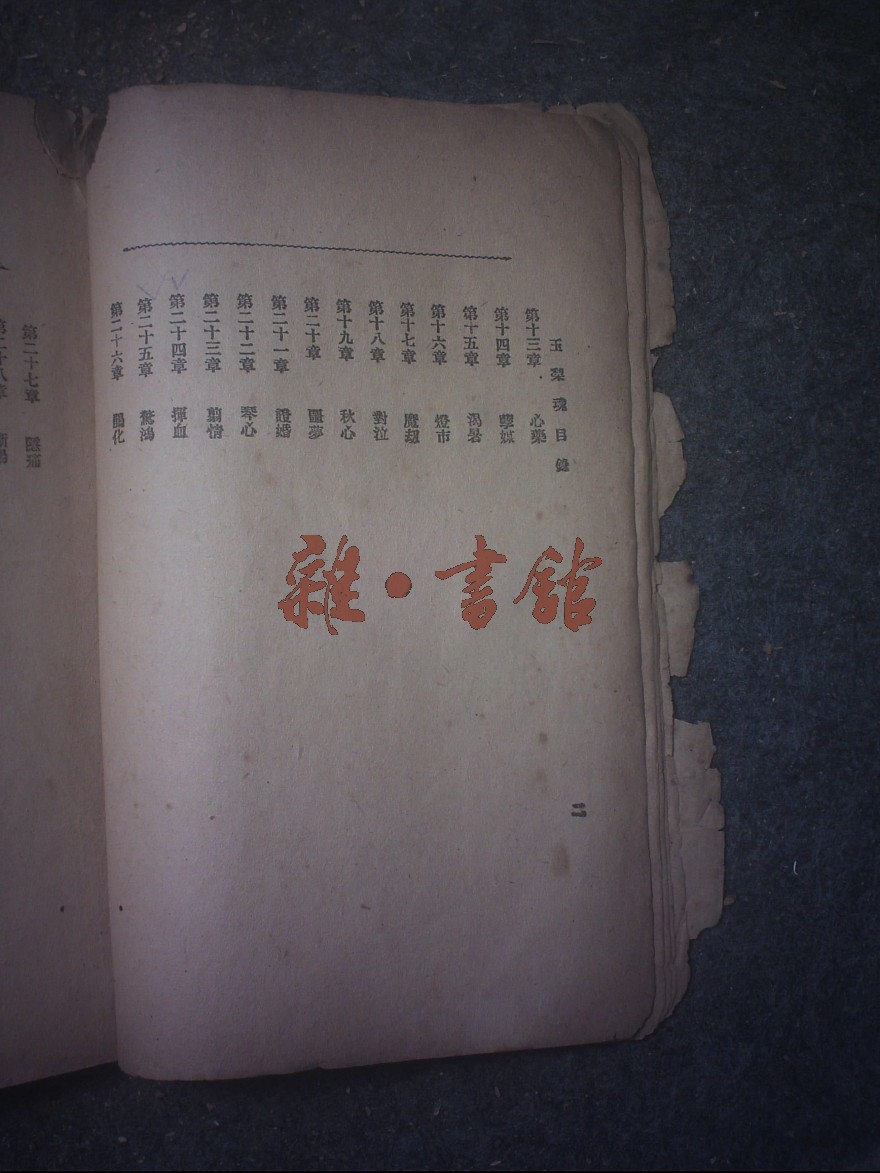 玉梨魂目錄
第十三章 心藥
第十四章 孽媒
第十五章 渴暑
第十六章 燈市
第十七章 魔劫
第十八章 對泣
第十九章 秋心
第二十章 噩夢
第二十一章 證婚
第二十二章 琴心
第二十三章 剪情
第二十四章 揮血
第二十五章 驚鴻
第二十六章 鵑化
二
第二十七章 隱痛
第二十八章
雜·書館